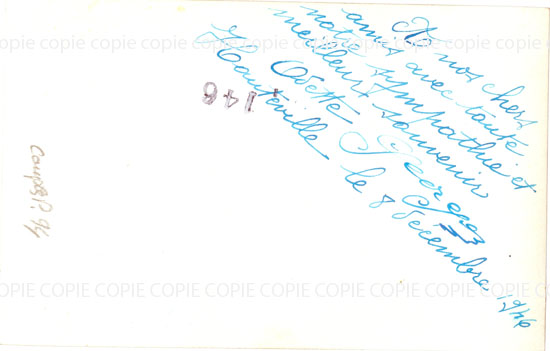 A nos chers
amis avec toute
notre sympathie et
meilleurs souvenir
Odette Georges
Hauteville le 8 Décembre 1946
146
COPIE COPIE COPIE COPIE COPIE COPIE COPIE COPIE COPIE COPIE
COPIE COPIE COPIE COPIE COPIE COPIE COPIE COPIE COPIE COPIE